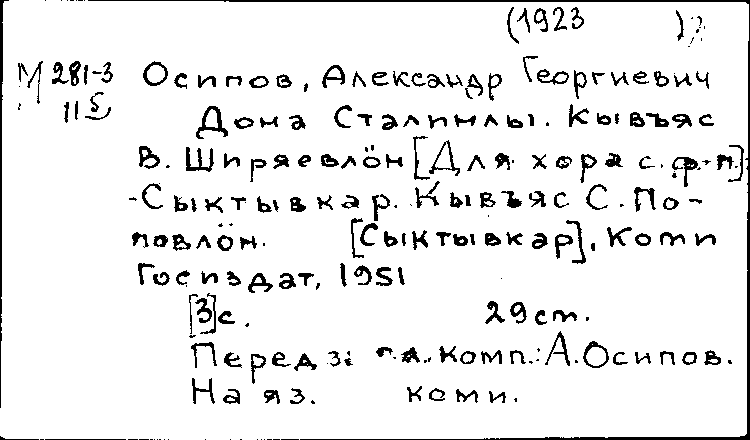 (1923 )
М 281-3 Осипов, Александр Георгиевич
115 Дона Сталинлы. Кывъяс
В. Ширяевлӧн [Для хора с. ф-п].
-Сыктывкар. Кывъяс С. По-
повлӧн. [Сыктывкар], Коми
Госиздат, 1951
[3]с. 29 см.
Перед комп.: А. Осипов.
На яз. коми.